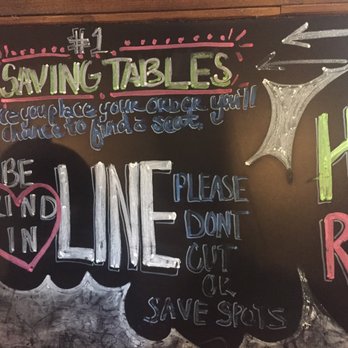 #1
SAVING TABLES
you place your order you'll
chance to find a seat.
BE
KIND
IN
LINE
PLEASE
DONT
CUT
OR
SAVE SPOTS
H
R